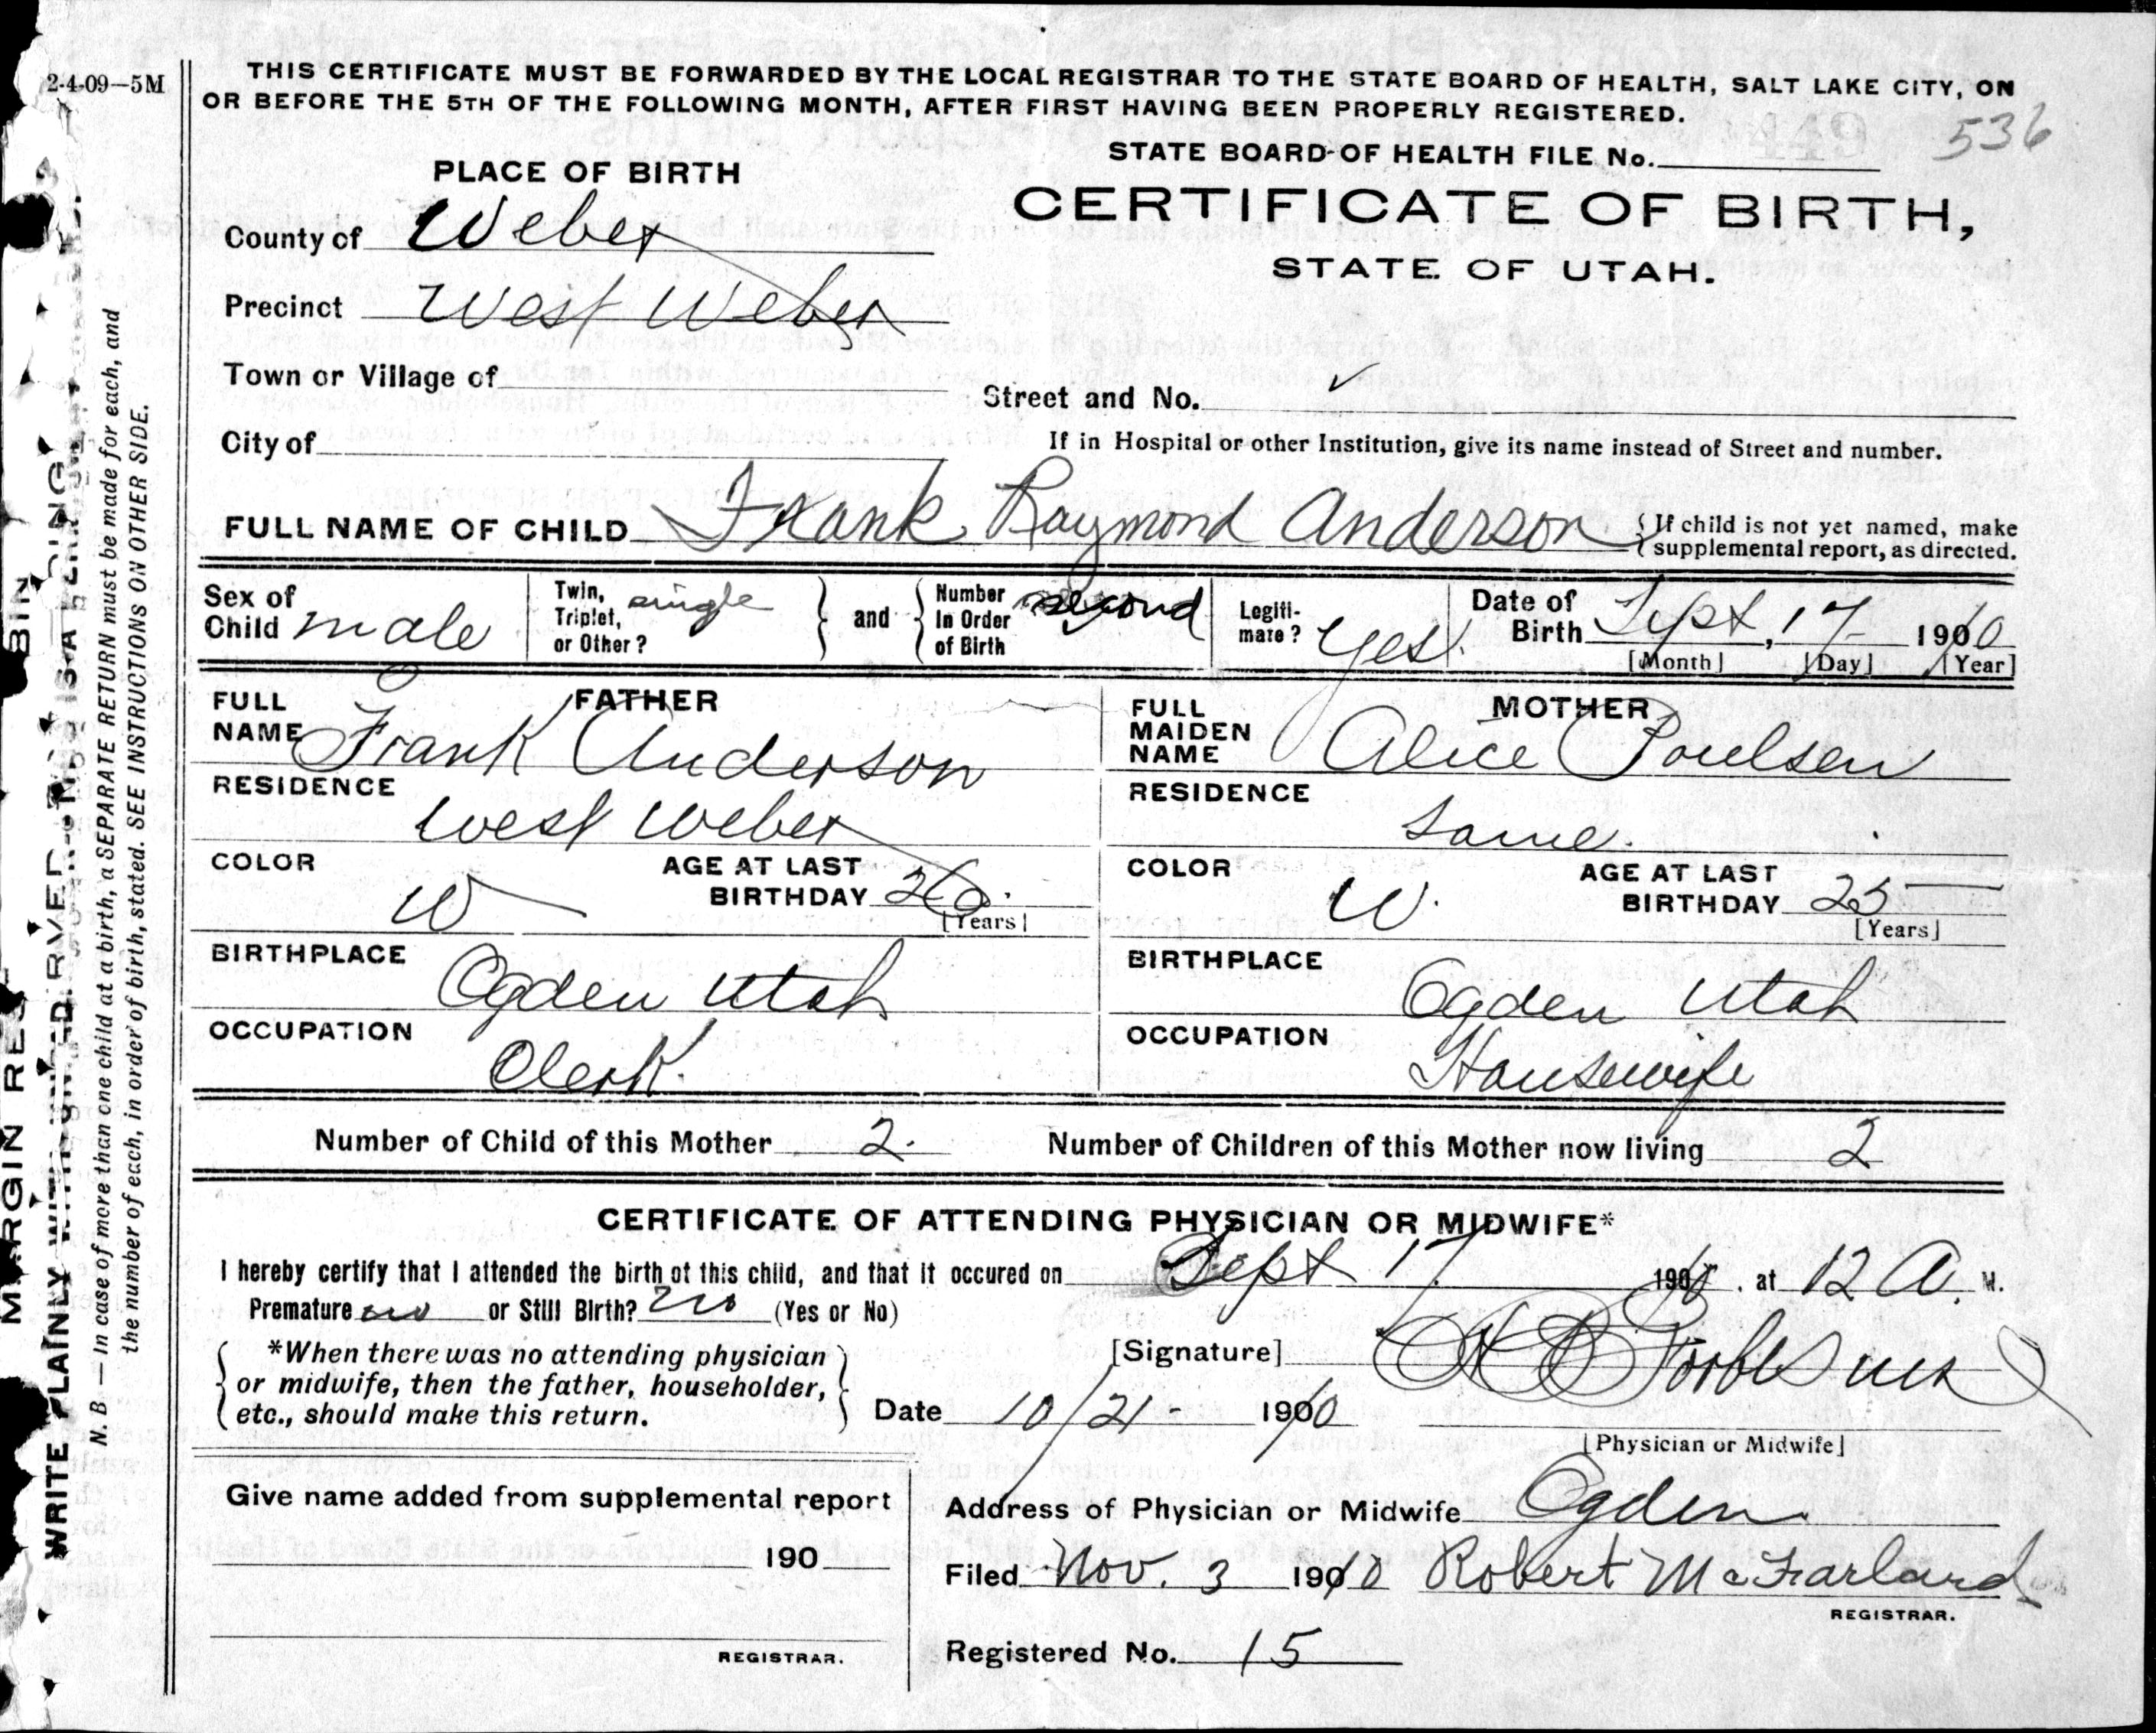 2-4-09—5M
THIS CERTIFICATE MUST BE FORWARDED BY THE LOCAL REGISTRAR TO THE STATE BOARD OF HEALTH, SALT LAKE CITY, ON
OR BEFORE THE 5TH OF THE FOLLOWING MONTH, AFTER FIRST HAVING BEEN PROPERLY REGISTERED.
536
STATE BOARD OF HEALTH FILE No.
CERTIFICATE OF BIRTH,
STATE OF UTAH.
PLACE OF BIRTH
County of Weber
Precinct West Weber
Town or Village of
Street and No.
City of
If in Hospital or other Institution, give its name instead of Street and number.
FULL NAME OF CHILD Frank Raymond Anderson
If child is not yet named, make
supplemental report, as directed.
Sex of Child male
Twin, Triplet, or Other? single
and
Number In Order of Birth second
Legiti-mate? Yes.
Date of Birth Sept, 17 1910
[Month] [Day] [Year]
FATHER
FULL NAME Frank Anderson
RESIDENCE
West Weber
COLOR W
AGE AT LAST BIRTHDAY 26.
[Years]
BIRTHPLACE
Ogden Utah
OCCUPATION
Clerk.
MOTHER
FULL MAIDEN NAME Alice Poulsen
RESIDENCE
Same.
COLOR W.
AGE AT LAST BIRTHDAY 25
[Years]
BIRTHPLACE
Ogden Utah
OCCUPATION
Housewife
Number of Child of this Mother 2. Number of Children of this Mother now living 2
CERTIFICATE OF ATTENDING PHYSICIAN OR MIDWIFE*
I hereby certify that I attended the birth of this child, and that it occured on Sept 17. 1910, at 12 A. M.
Premature no or Still Birth? no (Yes or No)
*When there was no attending physician
or midwife, then the father, householder,
etc., should make this return.
[Signature]
Date 10/21- 1910
[Physician or Midwife]
Give name added from supplemental report
190
REGISTRAR.
Address of Physician or Midwife Ogden.
Filed Nov. 3 1910 Robert McFarland
REGISTRAR.
Registered No. 15
WRITE PLAINLY WITH
N. B. — In case of more than one child at a birth, a SEPARATE RETURN must be made for each, and
the number of each, in order of birth, stated. SEE INSTRUCTIONS ON OTHER SIDE.